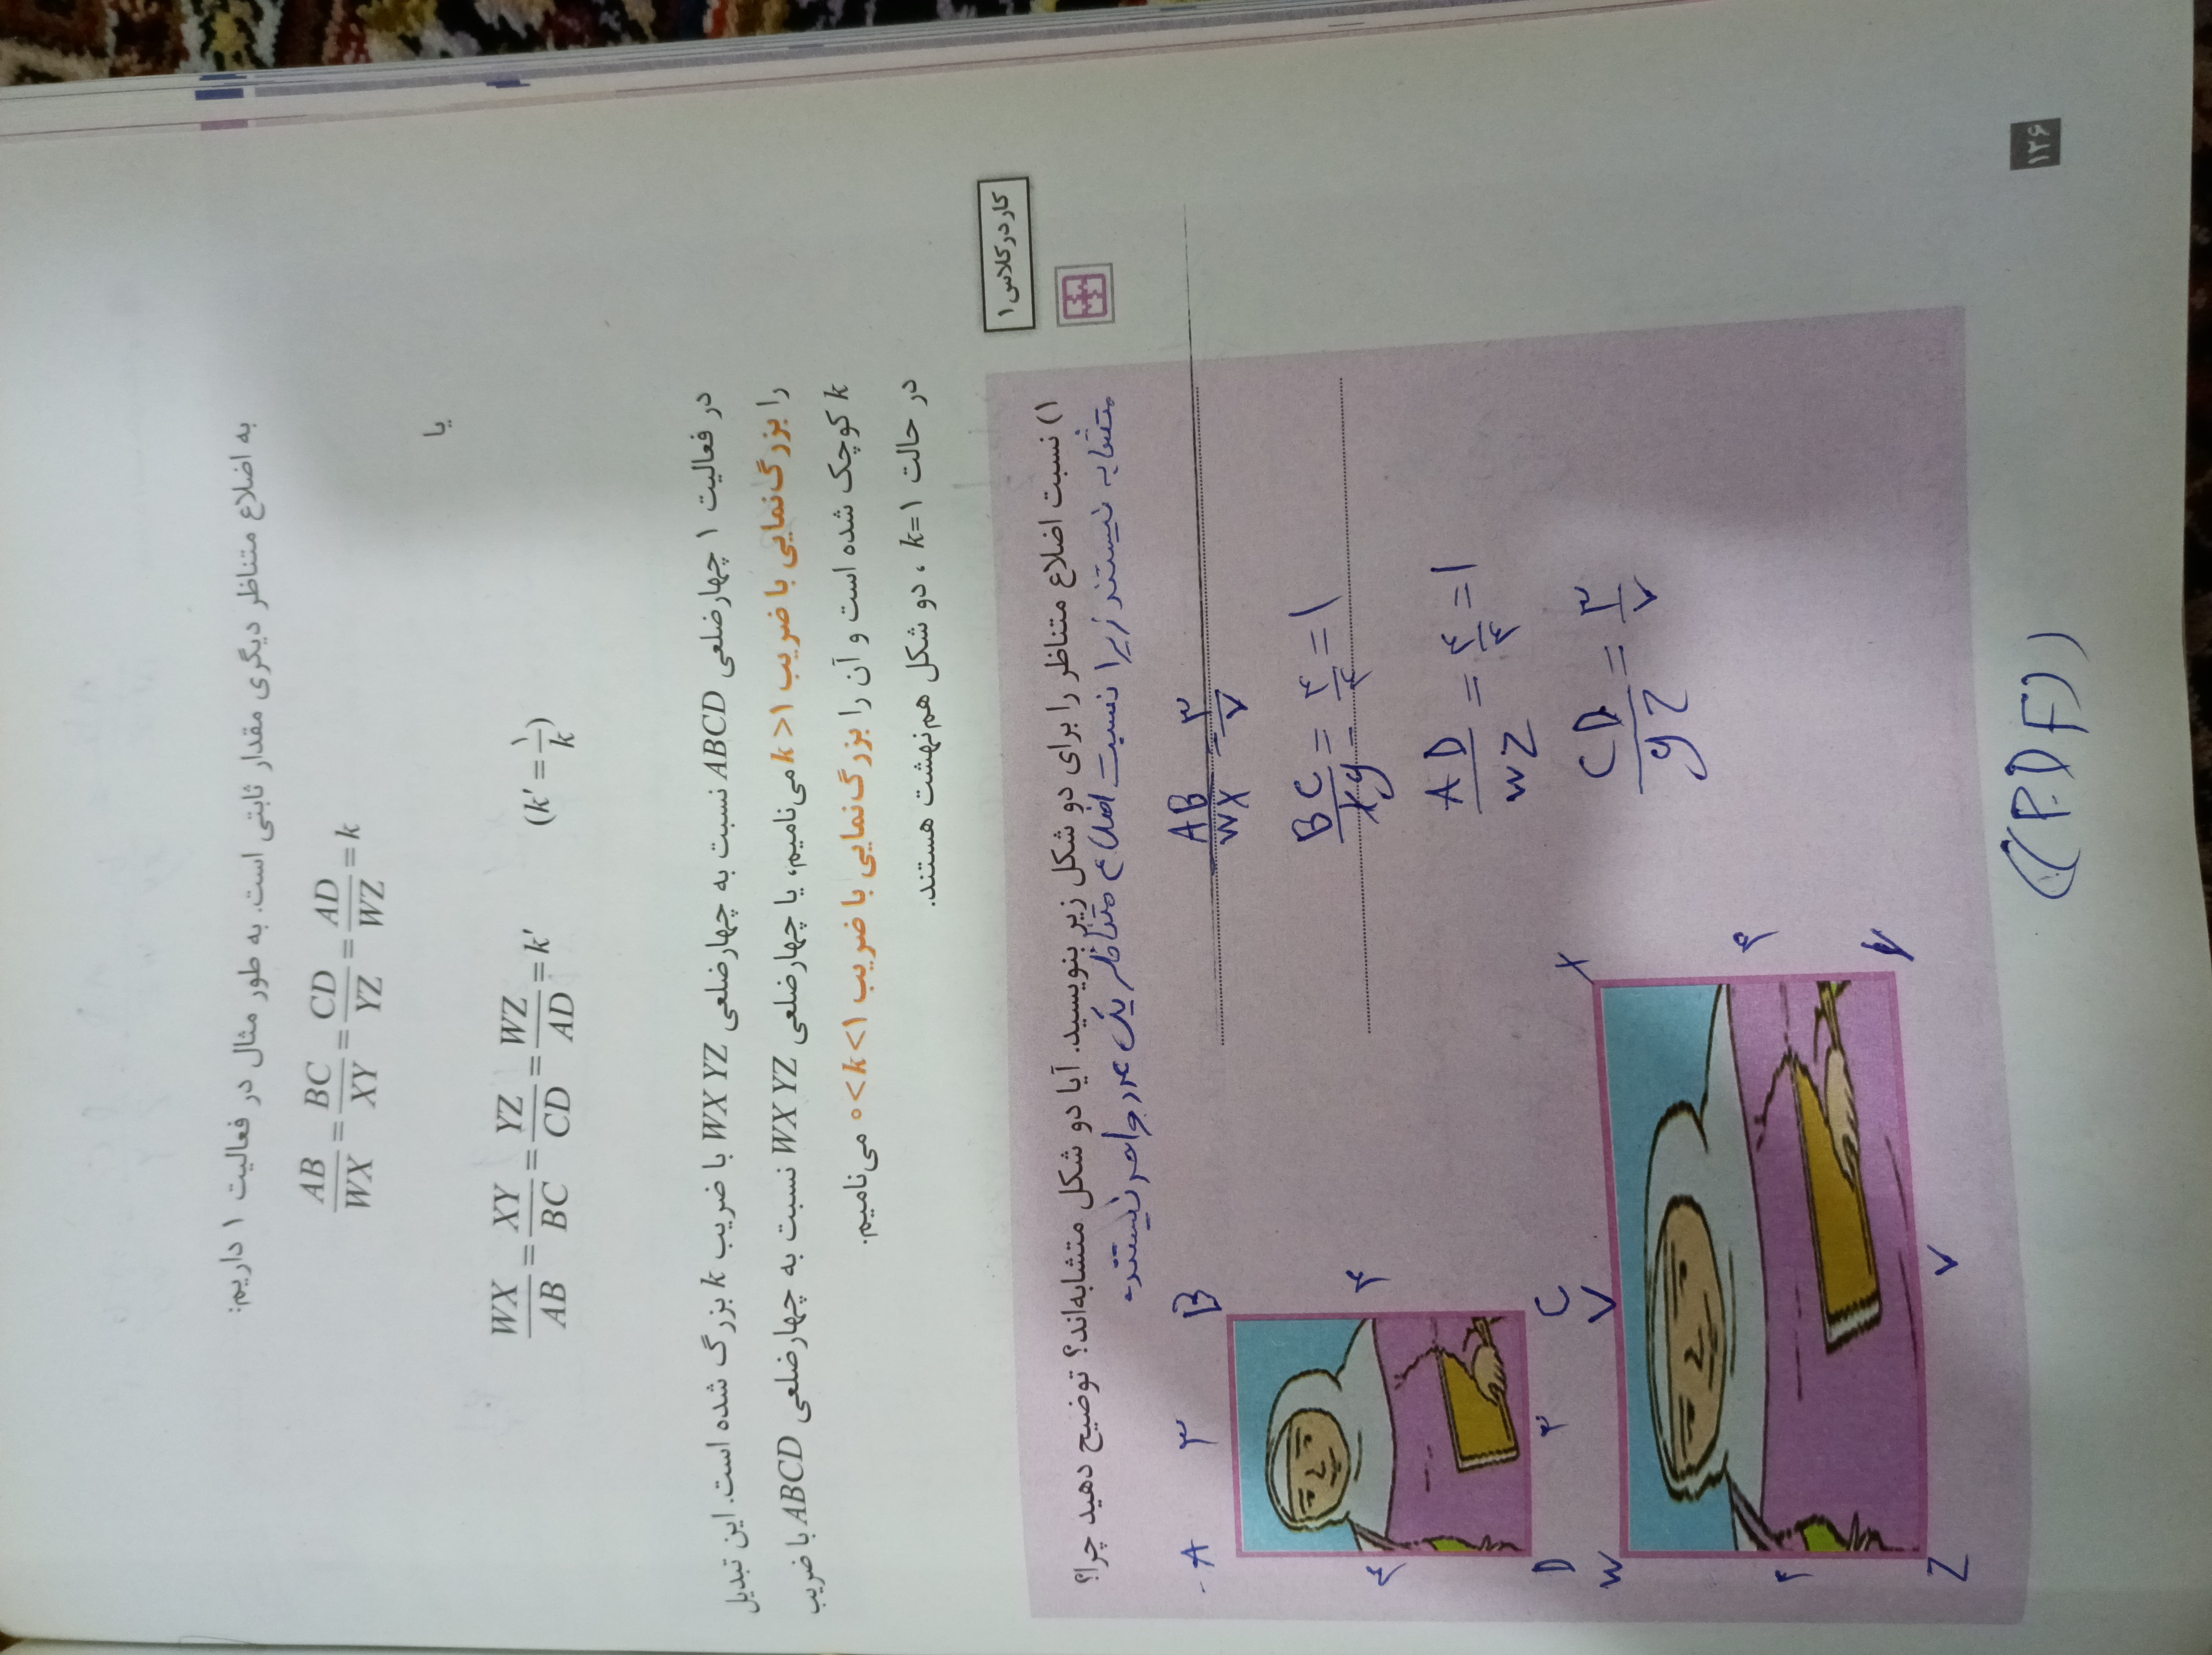 به اضلاع متناظر دیگری مقدار ثابتی است. به طور مثال در فعالیت ۱ داریم:
AB/WX = BC/XY = CD/YZ = AD/WZ = k
یا
WX/AB = XY/BC = YZ/CD = WZ/AD = k′ (k′ = ۱/k)
در فعالیت ۱ چهارضلعی ABCD نسبت به چهارضلعی WXYZ با ضریب k بزرگ شده است. این تبدیل
را بزرگ‌نمایی با ضریب k>۱ می‌نامیم، یا چهارضلعی WXYZ نسبت به چهارضلعی ABCD با ضریب
k کوچک شده است و آن را بزرگ‌نمایی با ضریب ۰<k<۱ می‌نامیم.
در حالت k=۱ ، دو شکل هم‌نهشت هستند.
کار در کلاس ۱
۱) نسبت اضلاع متناظر را برای دو شکل زیر بنویسید. آیا دو شکل متشابه‌اند؟ توضیح دهید چرا؟
متشابه نیستند زیرا نسبت اضلاع متناظر یک عدد واحد نیستند
A ۳ B
AB/WX = ۳/۷
۴ ۴
BC/xy = ۴/۴ = ۱
AD/WZ = ۴/۴ = ۱
D ۳ C
CD/yZ = ۳/۷
W ۷ X
۴ ۴
Z ۷ y
((P.D F))
۱۲۶